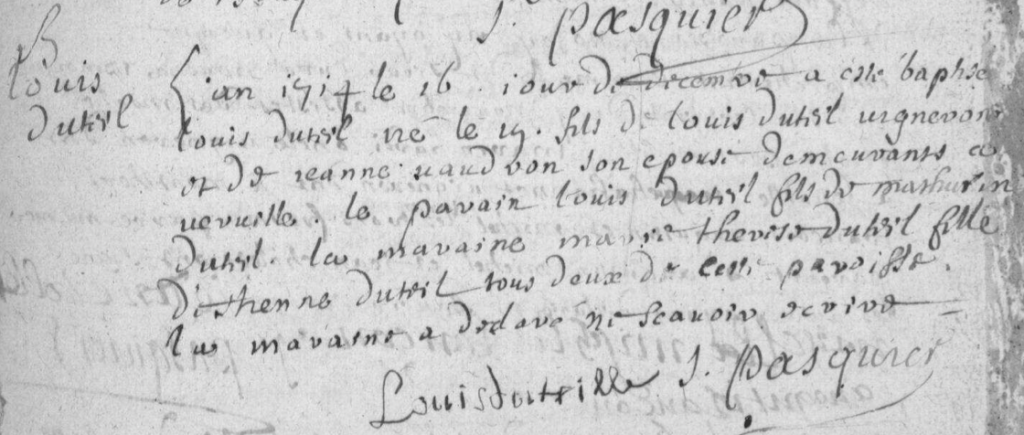 J. Pasquier
B
louis
duteil
Lan 1714 le 16. jour de decembre a este baptise
louis duteil né le 15. fils de louis duteil vigneron
et de jeanne vaudron son epouse demeurants a
verville. le parain louis duteil fils de mathurin
duteil. la maraine marie therese duteil fille
d'ethenne duteil tous deux de cette paroisse.
la maraine a declaré ne scavoir ecrire
Louis duteille J. Pasquier